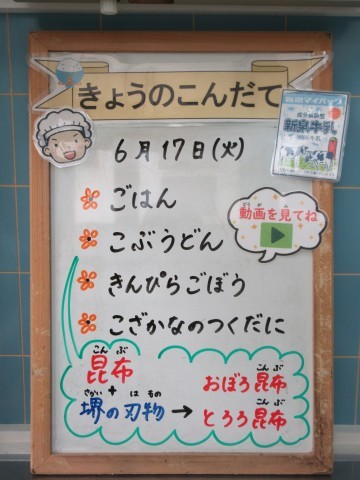 きょうのこんだて
6月17日(火)
ごはん
こぶうどん
動画を見てね
きんぴらごぼう
こざかなのつくだに
昆布
こんぶ
+
堺の刃物
さかい は もの
→
おぼろ昆布
こんぶ
とろろ昆布
こんぶ